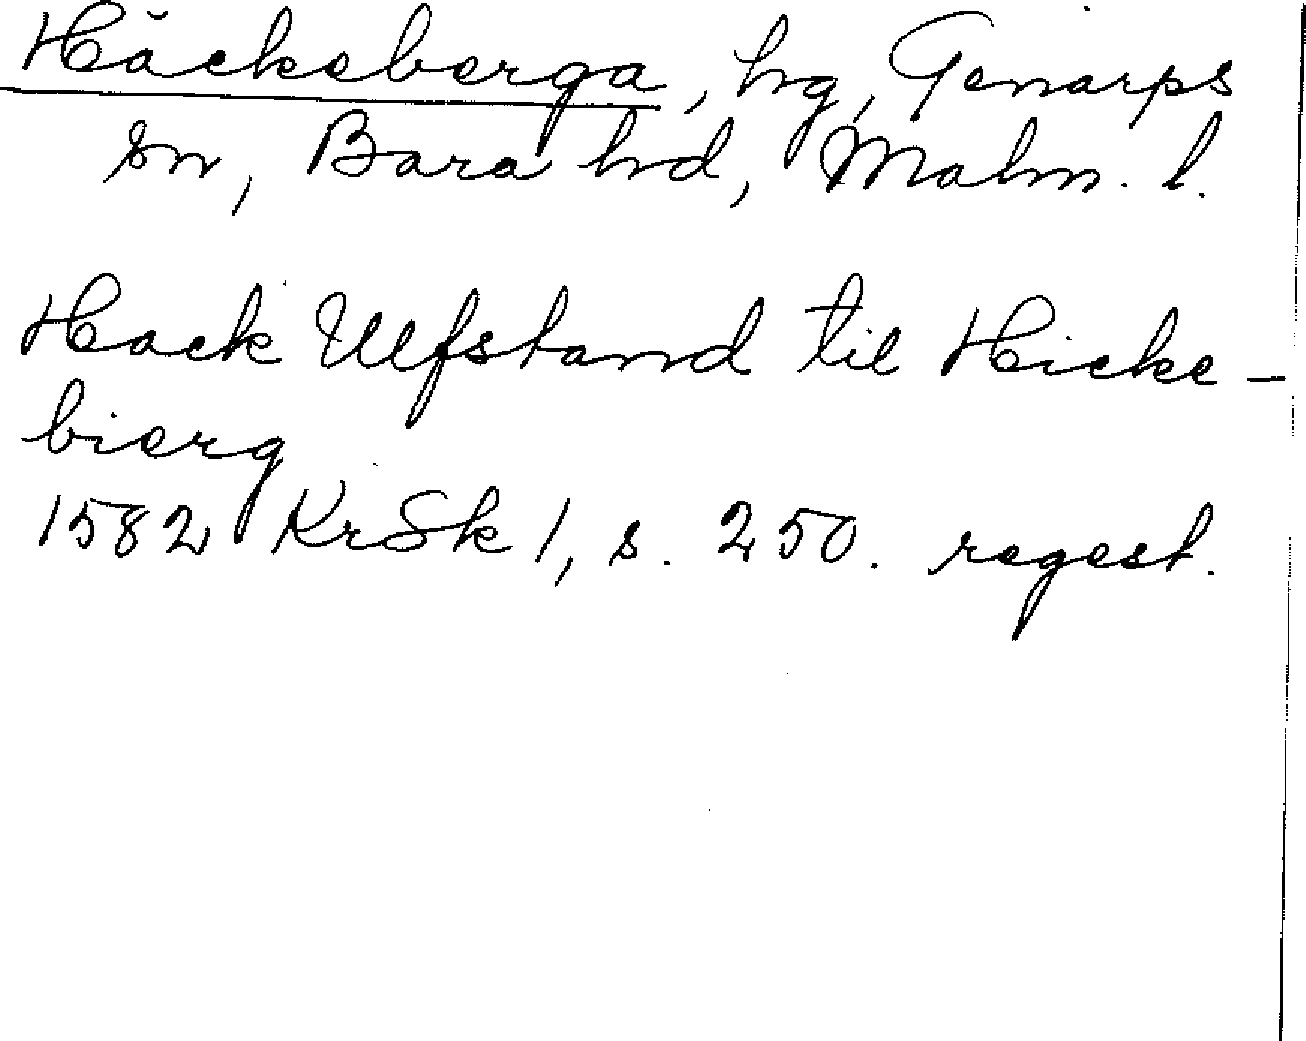 Häckeberga, hg, Genarps
sn, Bara hd, Malm. l.
Hack Ulfstand til Hicke-
bierg
1582 KrSk 1, s. 250. regest.